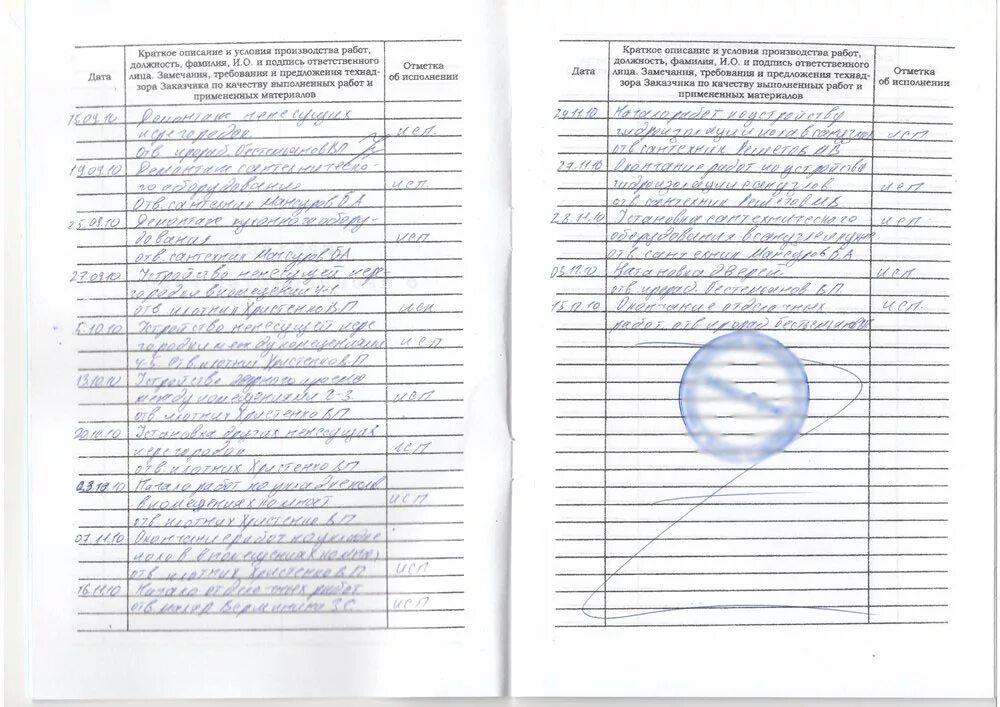 Дата
Краткое описание и условия производства работ,
должность, фамилия, И.О. и подпись ответственного
лица. Замечания, требования и предложения технад-
зора Заказчика по качеству выполненных работ и
примененных материалов
Отметка
об исполнении
15.09.10 Демонтаж ненесущих
перегородок. исп.
отв. прораб. Бестемьянов В.П
19.09.10 Демонтаж сантехническо-
го оборудования исп.
Отв. сантехник Мансуров Б.А
25.09.10 Демонтаж кухонного обору-
дования исп
отв. сантехник Мансуров Б.А.
27.09.10 Устройство ненесущей пере-
городки в помещении ч-1.
отв. плотник Христенко В.П исп
5.10.10 Устройство ненесущей пере
городки между помещениями исп
ч-5. Отв. плотник Христенко В.П
13.10.10 Устройство проема
между помещениями 2-3 исп
отв. плотник Христенко В.П
20.10.10 Установка других ненесущих
перегородок исп
отв. плотник Христенко В.П
Начало работ по укладке полов
в помещениях комнат исп
отв. плотник Христенко В.П
07.11.10 Окончание работ по укладке
полов в помещениях комнат
отв. плотник, Христенко В.П исп
16.11.10 Начало отделочных работ
отв. маляр З.С. исп
Дата
Краткое описание и условия производства работ,
должность, фамилия, И.О. и подпись ответственного
лица. Замечания, требования и предложения технад-
зора Заказчика по качеству выполненных работ и
примененных материалов
Отметка
об исполнении
24.11.10 Начало работ по устройству
гидроизоляции пола в санузле исп
отв сантехник Решетов М.В.
27.11.10 Окончание работ по устройству
гидроизоляции санузлов исп
отв. сантехник Решетов М.В.
28.11.10 Установка сантехнического исп.
оборудования в санузле и кухне
отв. сантехник Мансуров Б.А
03.12.10 дверей исп
отв. прораб. Бестемьянов В.П
15.12.10 Окончание отделочных исп.
работ. отв. прораб Бестемьянов